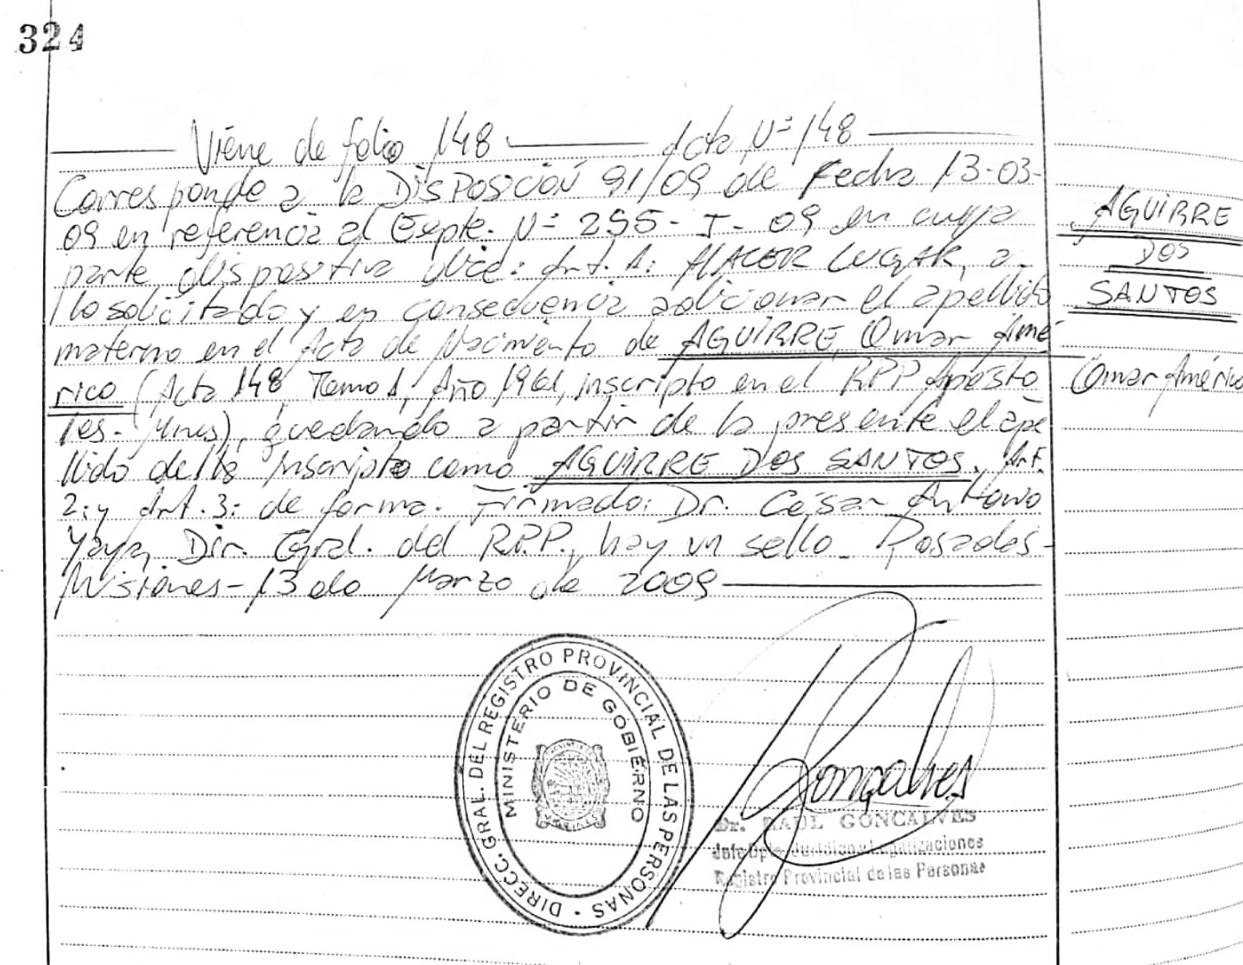 324
Viene de folio 148 Acta Nº 148
Corresponde a la Disposición 91/09 de Fecha 13-03-
09 en referencia al Expte. Nº 295-I-09 en cuya
parte dispositiva dice: Art. 1: HACER LUGAR, a
lo solicitado y en consecuencia adicionar el apellido
materno en el Acta de Nacimiento de AGUIRRE, Omar Amé
rico (Acta 148, Tomo 1, Año 1961, inscripto en el RPP Apósto
les-Mnes), quedando a partir de la presente el ape
llido del inscripto como AGUIRRE DOS SANTOS. Art.
2: y Art. 3: de forma. Firmado: Dr. César Antonio
Yaya, Dir. Gral. del R.P.P., hay un sello. Posadas-
Misiones-13 de Marzo de 2009
AGUIRRE
DOS
SANTOS
Omar Américo
DIRECC. GRAL. DEL REGISTRO PROVINCIAL DE LAS PERSONAS
MINISTERIO DE GOBIERNO
Gonçalves
Dr. RAUL GONCALVES
Jefe Dpto. Jurídico y Legalizaciones
Registro Provincial de las Personas